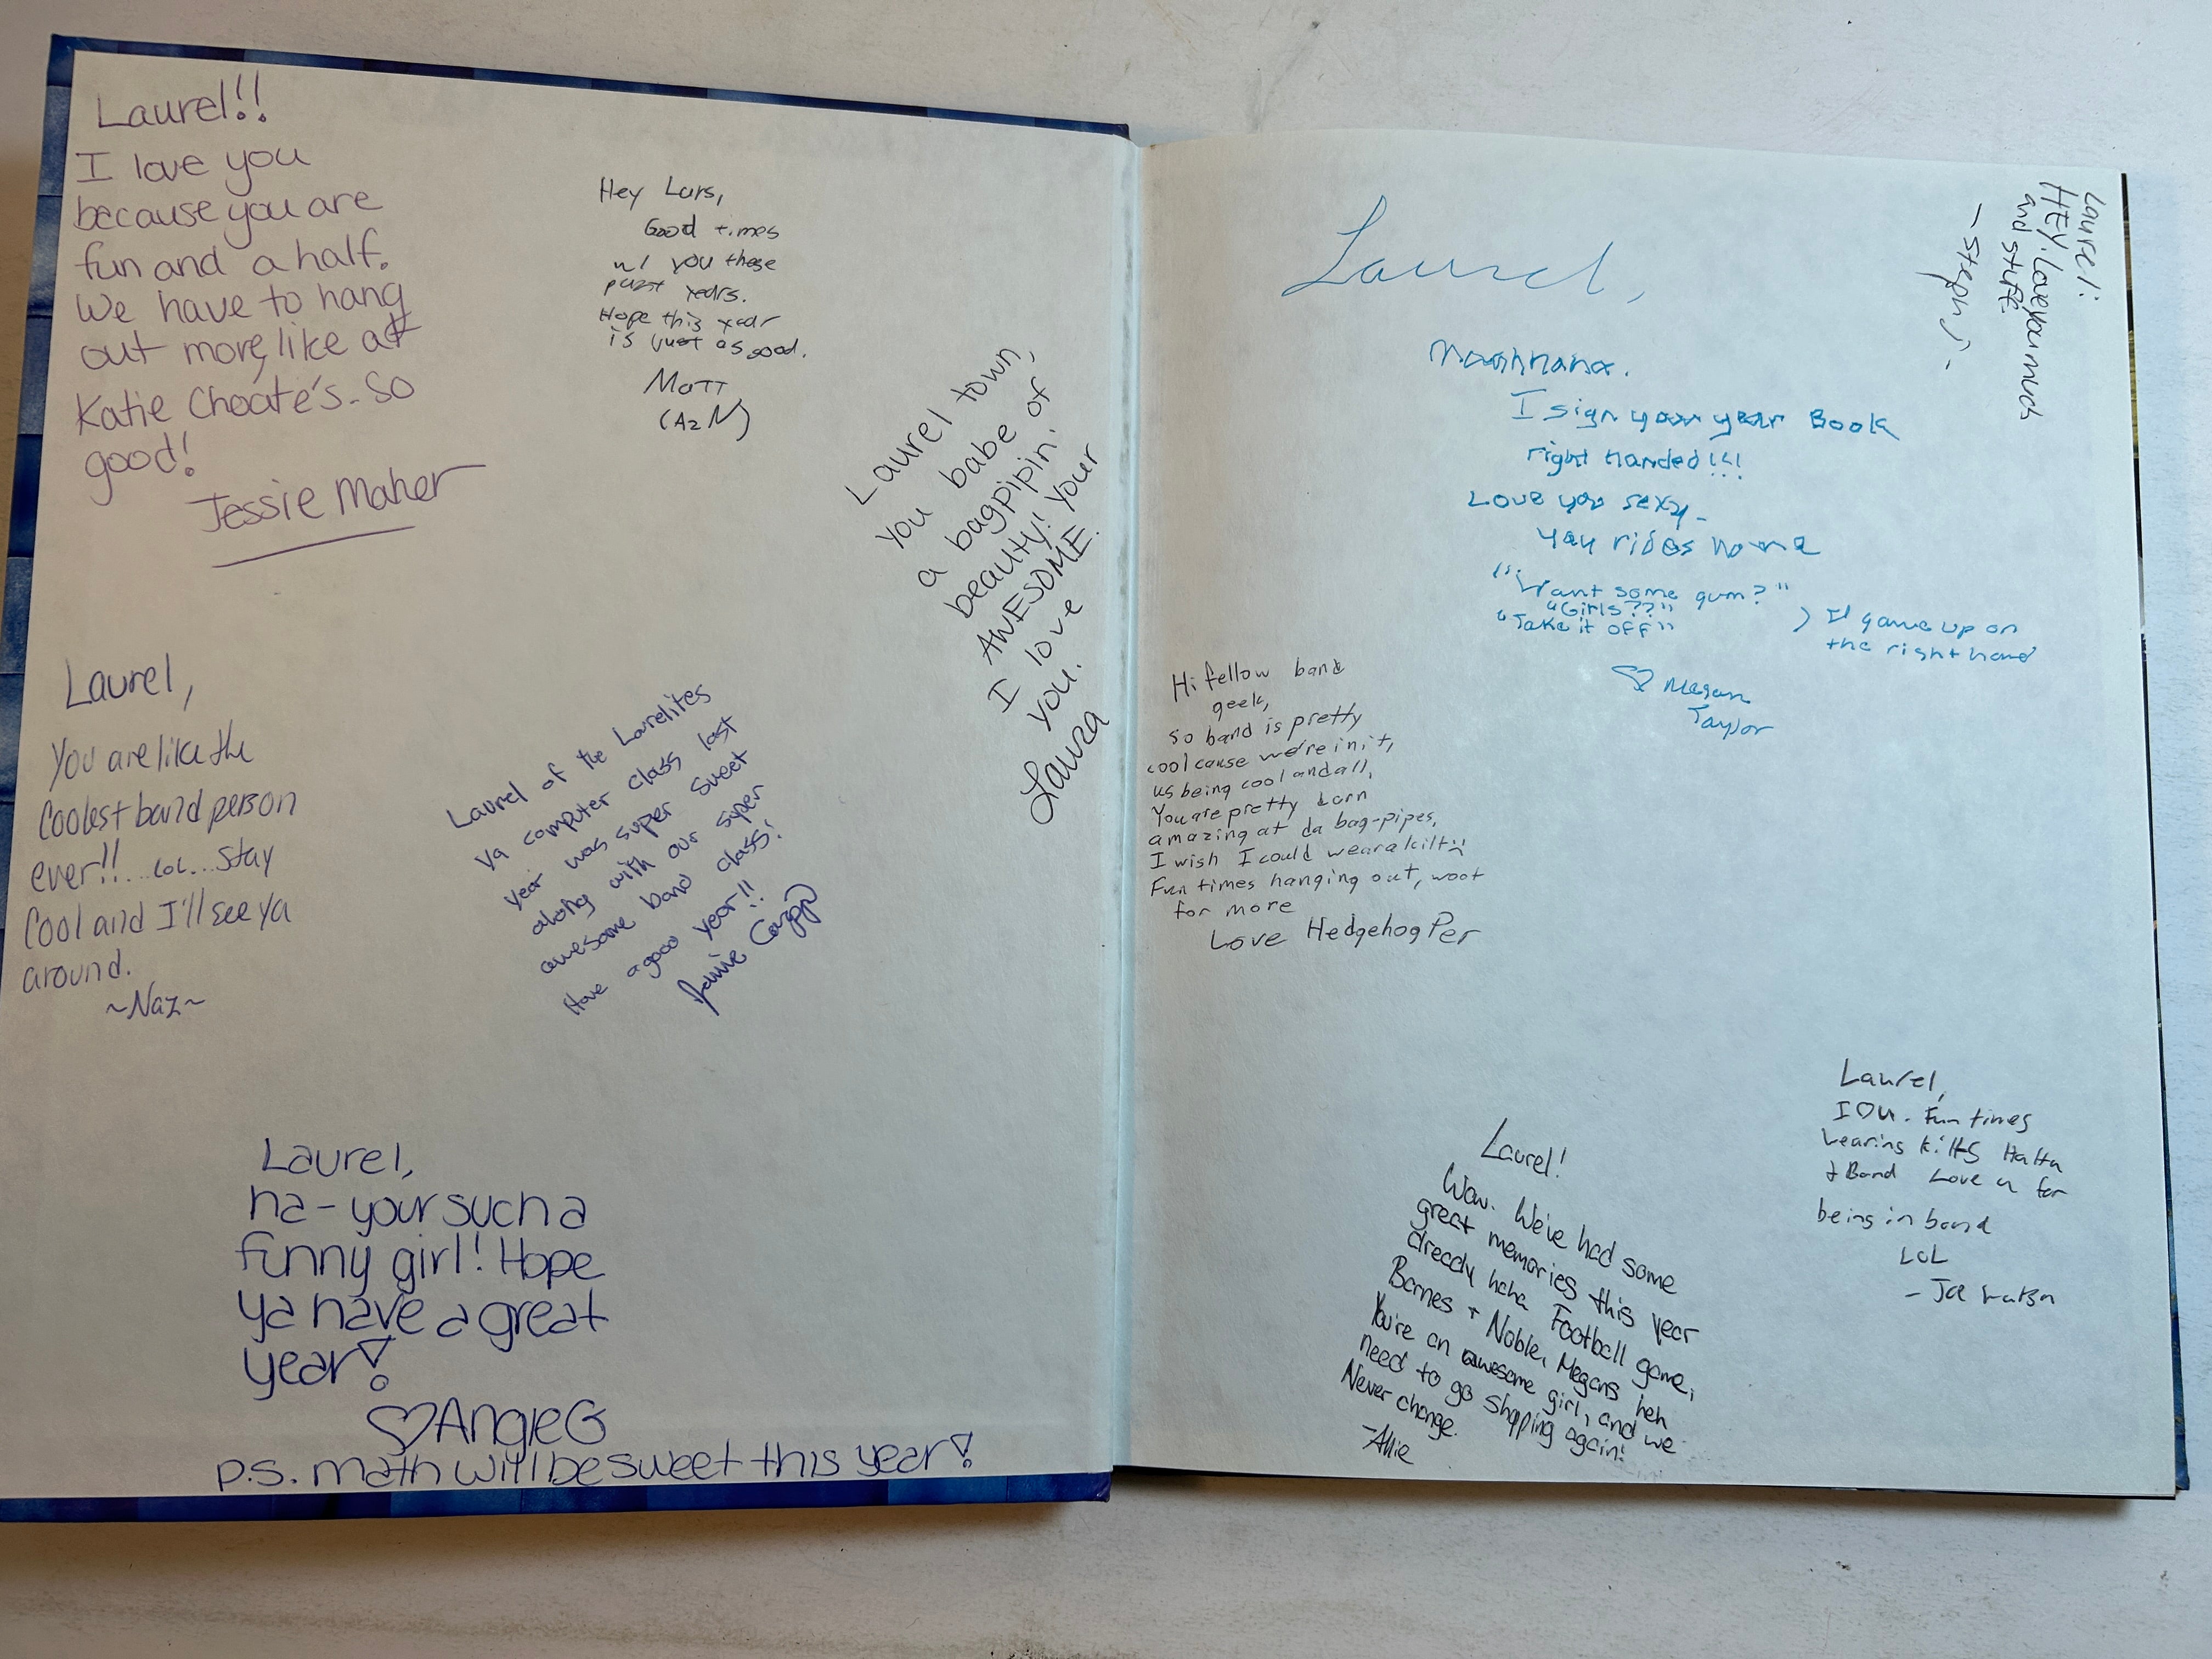 Laurel!!
I love you
because you are
fun and a half.
We have to hang
out more, like at
Katie Choate's. So
good!
Jessie Maher
Hey Lars,
Good times
w/ you these
past years.
Hope this year
is just as good.
Matt
(AzN)
Laurel town,
you babe of
a bagpipin'
beauty! Your
AWESOME.
I love
you.
Laura
Laurel,
You are like the
Coolest band person
ever!!...LOL...stay
Cool and I'll see ya
around.
~Naz~
Laurel of the Laurelites
Ya computer class last
year was super sweet
along with our super
awesome band class!
Have a good year!!
Laurel,
ha-your such a
funny girl! Hope
ya have a great
year!
♡AngieG
p.s. math will be sweet this year!
Laurel:
HEY. Love you much
and stuff.
- Steph :)
Laurel,
I sign your year Book
right handed!!!
Love you sexy-
yay rides home
"Want some gum?"
"Girls??"
"Take it off"
) I gave up on
the right hand
♡ Megan
Taylor
Hi fellow band
geek,
so band is pretty
cool cause we're in it,
us being cool and all,
You are pretty darn
amazing at da bag-pipes,
I wish I could wear a kilt :(
Fun times hanging out, woot
for more
Love Hedgehog Per
Laurel!
Wow. We've had some
great memories this year
already haha Football game,
Barnes + Noble, Megans heh
You're an awesome girl, and we
need to go shopping again!
Never change.
-Allie
Laurel,
I ♡ u. Fun times
wearing kilts HaHa
+ Band Love u for
being in band
LOL